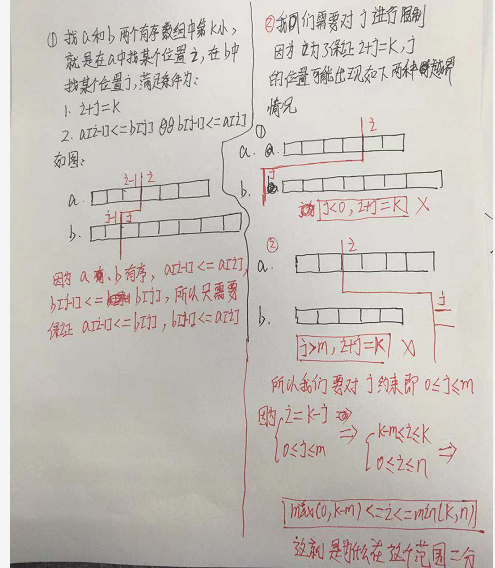 ① 找a和b两个有序数组中第K小,
就是在a中找某个位置i,在b中
找某个位置j,满足条件为:
1. i+j=K
2. a[i-1]<=b[j] && b[j-1]<=a[i]
如图:
i-1 i
a.
j-1 j
b.
因为a、b有序, a[i-1]<=a[i],
b[j-1]<= b[j],所以只需要
保证a[i-1]<=b[j], b[j-1]<=a[i]
② 我们需要对j进行限制
因为为了保证i+j=K, j
的位置可能出现如下两种越界
情况
①
i
a.
j
b.
j<0, i+j=K X
②
i
a.
j
b.
j>m, i+j=K X
所以我们要对j约束即 0≤j≤m
因为 i=K-j
0≤j≤m
⇒
K-m≤i≤K
0≤i≤n
⇒
max(0,K-m)<=i<=min(K,n)
这就是为什么在这个范围二分